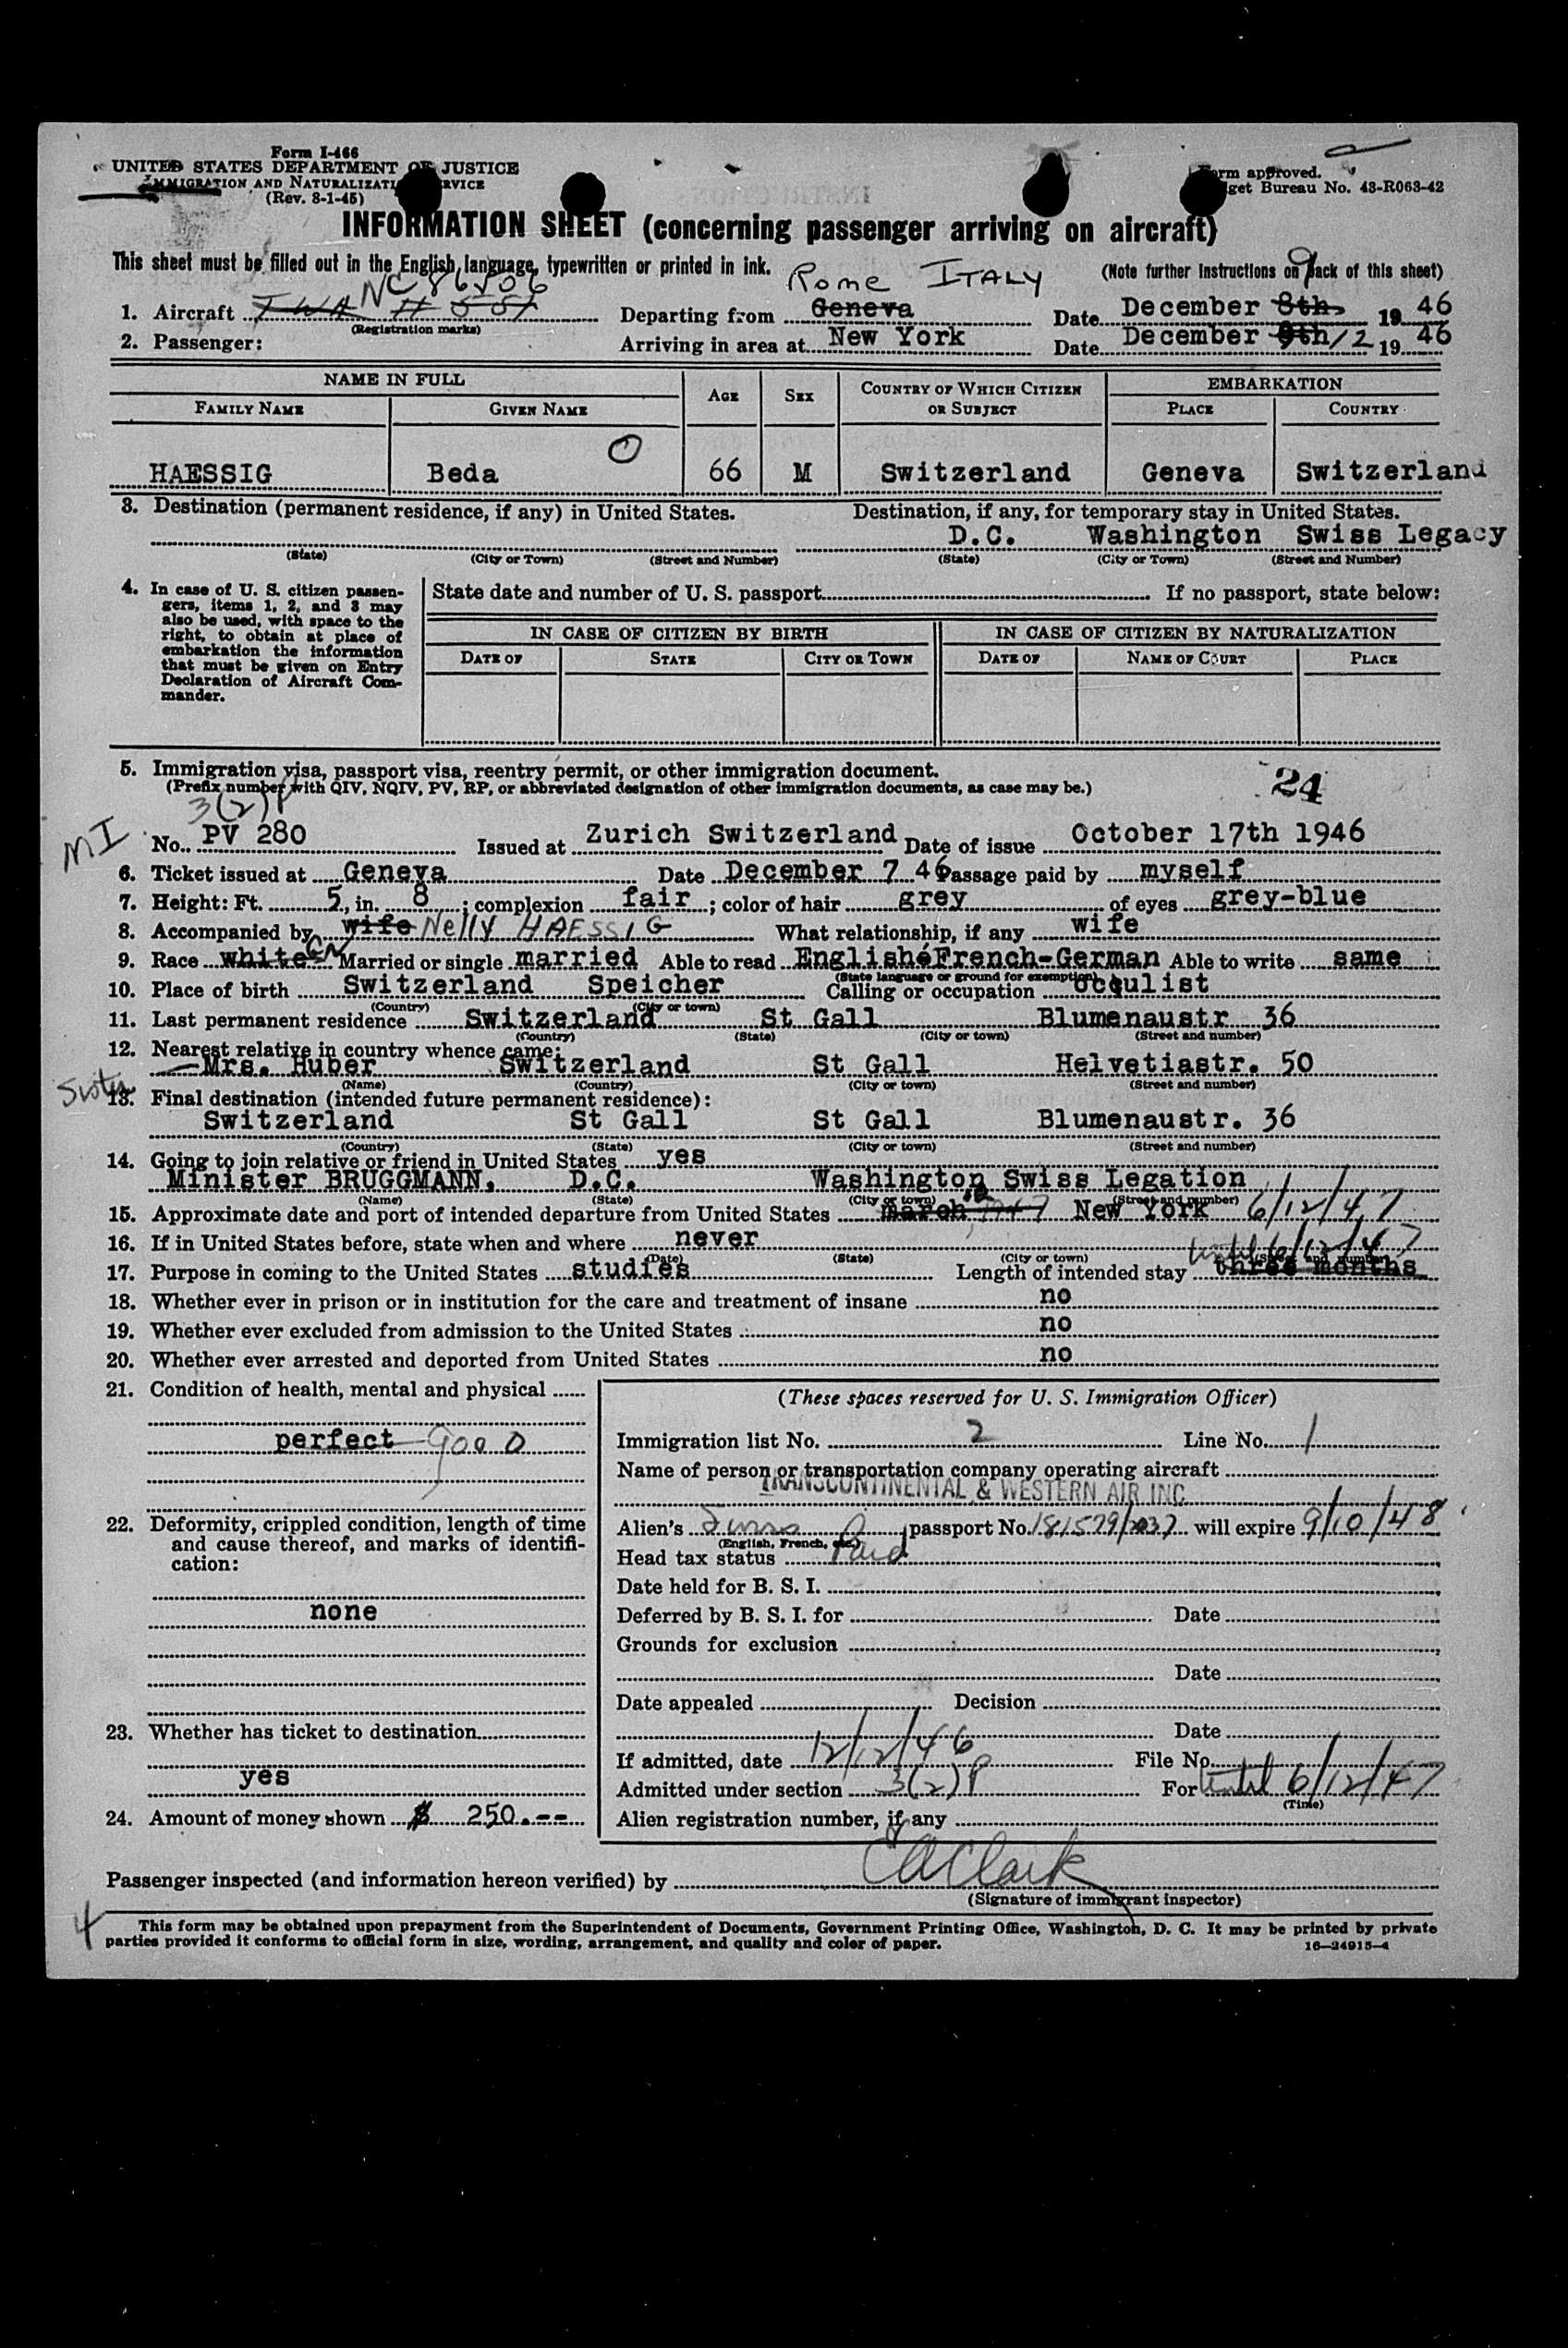 Form I-466
UNITED STATES DEPARTMENT OF JUSTICE
IMMIGRATION AND NATURALIZATI RVICE
(Rev. 8-1-45)
rm approved.
get Bureau No. 43-R063-42
INFORMATION SHEET (concerning passenger arriving on aircraft)
This sheet must be filled out in the English language, typewritten or printed in ink.
(Note further instructions on back of this sheet)
9
NC 86506 Rome ITALY
1. Aircraft TWA # 551 Departing from Geneva Date December 8th 19 46
(Registration marks)
2. Passenger: Arriving in area at New York Date December 9th/12 19 46
NAME IN FULL AGE SEX COUNTRY OF WHICH CITIZEN OR SUBJECT EMBARKATION
FAMILY NAME GIVEN NAME PLACE COUNTRY
O
HAESSIG Beda 66 M Switzerland Geneva Switzerland
3. Destination (permanent residence, if any) in United States. Destination, if any, for temporary stay in United States.
D.C. Washington Swiss Legacy
(State) (City or Town) (Street and Number) (State) (City or Town) (Street and Number)
4. In case of U. S. citizen passen-
gers, items 1, 2, and 3 may
also be used, with space to the
right, to obtain at place of
embarkation the information
that must be given on Entry
Declaration of Aircraft Com-
mander.
State date and number of U. S. passport If no passport, state below:
IN CASE OF CITIZEN BY BIRTH IN CASE OF CITIZEN BY NATURALIZATION
DATE OF STATE CITY OR TOWN DATE OF NAME OF COURT PLACE
5. Immigration visa, passport visa, reentry permit, or other immigration document.
(Prefix number with QIV, NQIV, PV, RP, or abbreviated designation of other immigration documents, as case may be.)
24
3(2)P
MI
No. PV 280 Issued at Zurich Switzerland Date of issue October 17th 1946
6. Ticket issued at Geneva Date December 7 46 Passage paid by myself
7. Height: Ft. 5, in. 8; complexion fair; color of hair grey of eyes grey-blue
8. Accompanied by wife Nelly HAESSIG What relationship, if any wife
9. Race white Married or single married Able to read English&French-German Able to write same
(State language or ground for exemption)
10. Place of birth Switzerland Speicher Calling or occupation occulist
(Country) (City or town)
11. Last permanent residence Switzerland St Gall Blumenaustr 36
(Country) (State) (City or town) (Street and number)
12. Nearest relative in country whence came:
Mrs. Huber Switzerland St Gall Helvetiastr. 50
(Name) (Country) (City or town) (Street and number)
Sister
13. Final destination (intended future permanent residence):
Switzerland St Gall St Gall Blumenaustr. 36
(Country) (State) (City or town) (Street and number)
14. Going to join relative or friend in United States yes
Minister BRUGGMANN, D.C. Washington Swiss Legation
(Name) (State) (City or town) (Street and number)
15. Approximate date and port of intended departure from United States march 1947 New York 6/12/47
16. If in United States before, state when and where never
(Date) (State) (City or town) (Street and number)
until 6/12/47
17. Purpose in coming to the United States studies Length of intended stay three months
18. Whether ever in prison or in institution for the care and treatment of insane no
19. Whether ever excluded from admission to the United States no
20. Whether ever arrested and deported from United States no
21. Condition of health, mental and physical
perfect good
22. Deformity, crippled condition, length of time
and cause thereof, and marks of identifi-
cation:
none
23. Whether has ticket to destination
yes
24. Amount of money shown $ 250.--
(These spaces reserved for U. S. Immigration Officer)
Immigration list No. 2 Line No. 1
Name of person or transportation company operating aircraft
TRANSCONTINENTAL & WESTERN AIR INC
Alien's Swiss passport No. 181579/2037 will expire 9/10/48
(English, French, etc.)
Head tax status Paid
Date held for B. S. I.
Deferred by B. S. I. for Date
Grounds for exclusion
Date
Date appealed Decision
Date
If admitted, date 12/12/46 File No.
Admitted under section 3(2)P For until 6/12/47
(Time)
Alien registration number, if any
Passenger inspected (and information hereon verified) by CA Clark
(Signature of immigrant inspector)
4
This form may be obtained upon prepayment from the Superintendent of Documents, Government Printing Office, Washington, D. C. It may be printed by private
parties provided it conforms to official form in size, wording, arrangement, and quality and color of paper.
16—24915-4